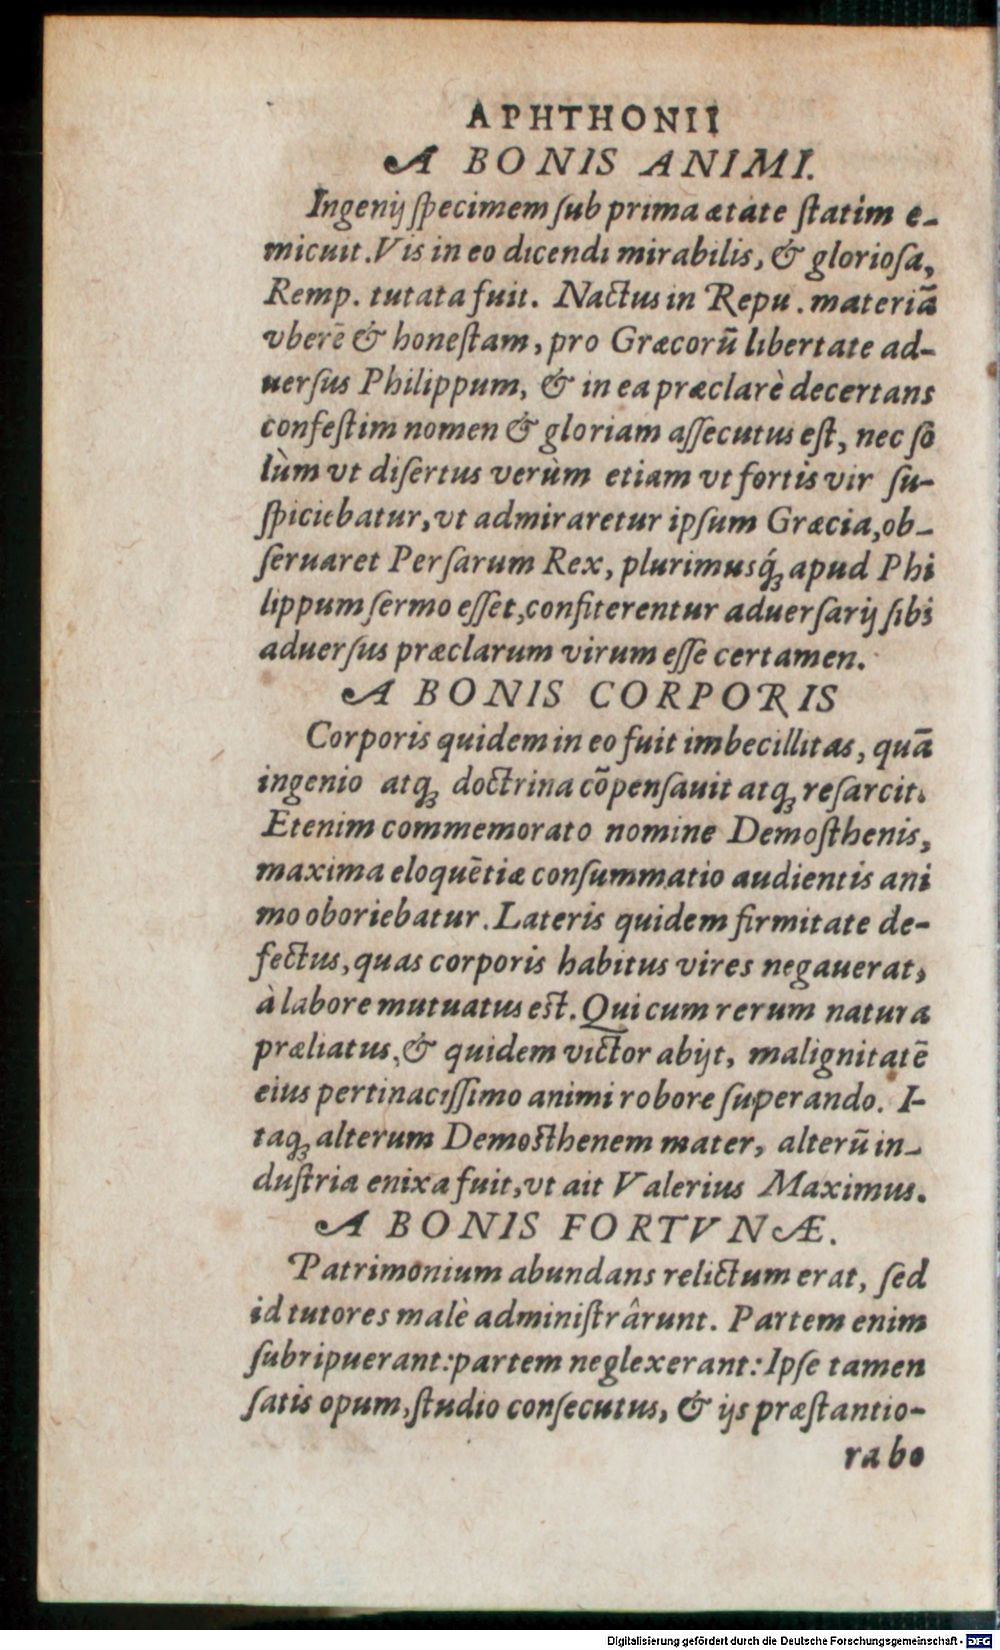 APHTHONII
A BONIS ANIMI.
Ingenij ſpecimem ſub prima ætate ſtatim e-
micuit. Vis in eo dicendi mirabilis, & glorioſa,
Remp. tutata fuit. Nactus in Repu. materiã
vberẽ & honeſtam, pro Græcorũ libertate ad-
uerſus Philippum, & in ea præclarè decertans
confeſtim nomen & gloriam aſſecutus eſt, nec ſo
lùm vt diſertus verùm etiam vt fortis vir ſu-
ſpiciebatur, vt admiraretur ipſum Græcia, ob-
ſeruaret Perſarum Rex, plurimusq́; apud Phi
lippum ſermo eſſet, confiterentur aduerſarij ſibi
aduerſus præclarum virum eſſe certamen.
A BONIS CORPORIS
Corporis quidem in eo fuit imbecillitas, quã
ingenio atq; doctrina cõpenſauit atq; reſarcit.
Etenim commemorato nomine Demoſthenis,
maxima eloquẽtiæ conſummatio audientis ani
mo oboriebatur. Lateris quidem firmitate de-
fectus, quas corporis habitus vires negauerat,
à labore mutuatus eſt. Qui cum rerum natura
præliatus, & quidem victor abijt, malignitatẽ
eius pertinaciſſimo animi robore ſuperando. I-
taq; alterum Demoſthenem mater, alterũ in-
duſtria enixa fuit, vt ait Valerius Maximus.
A BONIS FORTVNÆ.
Patrimonium abundans relictum erat, ſed
id tutores malè adminiſtrârunt. Partem enim
ſubripuerant: partem neglexerant: Ipſe tamen
ſatis opum, ſtudio conſecutus, & ijs præſtantio-
ra bo
Digitalisierung gefördert durch die Deutsche Forschungsgemeinschaft - DFG